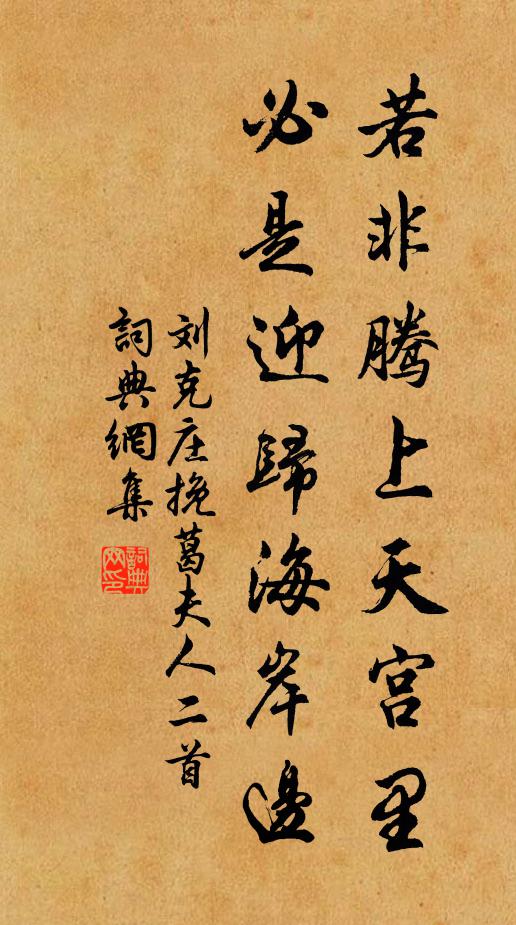 若非腾上天宫里
必是迎歸海岸邊
刘克庄挽葛夫人二首
詞典網集
詞典网印